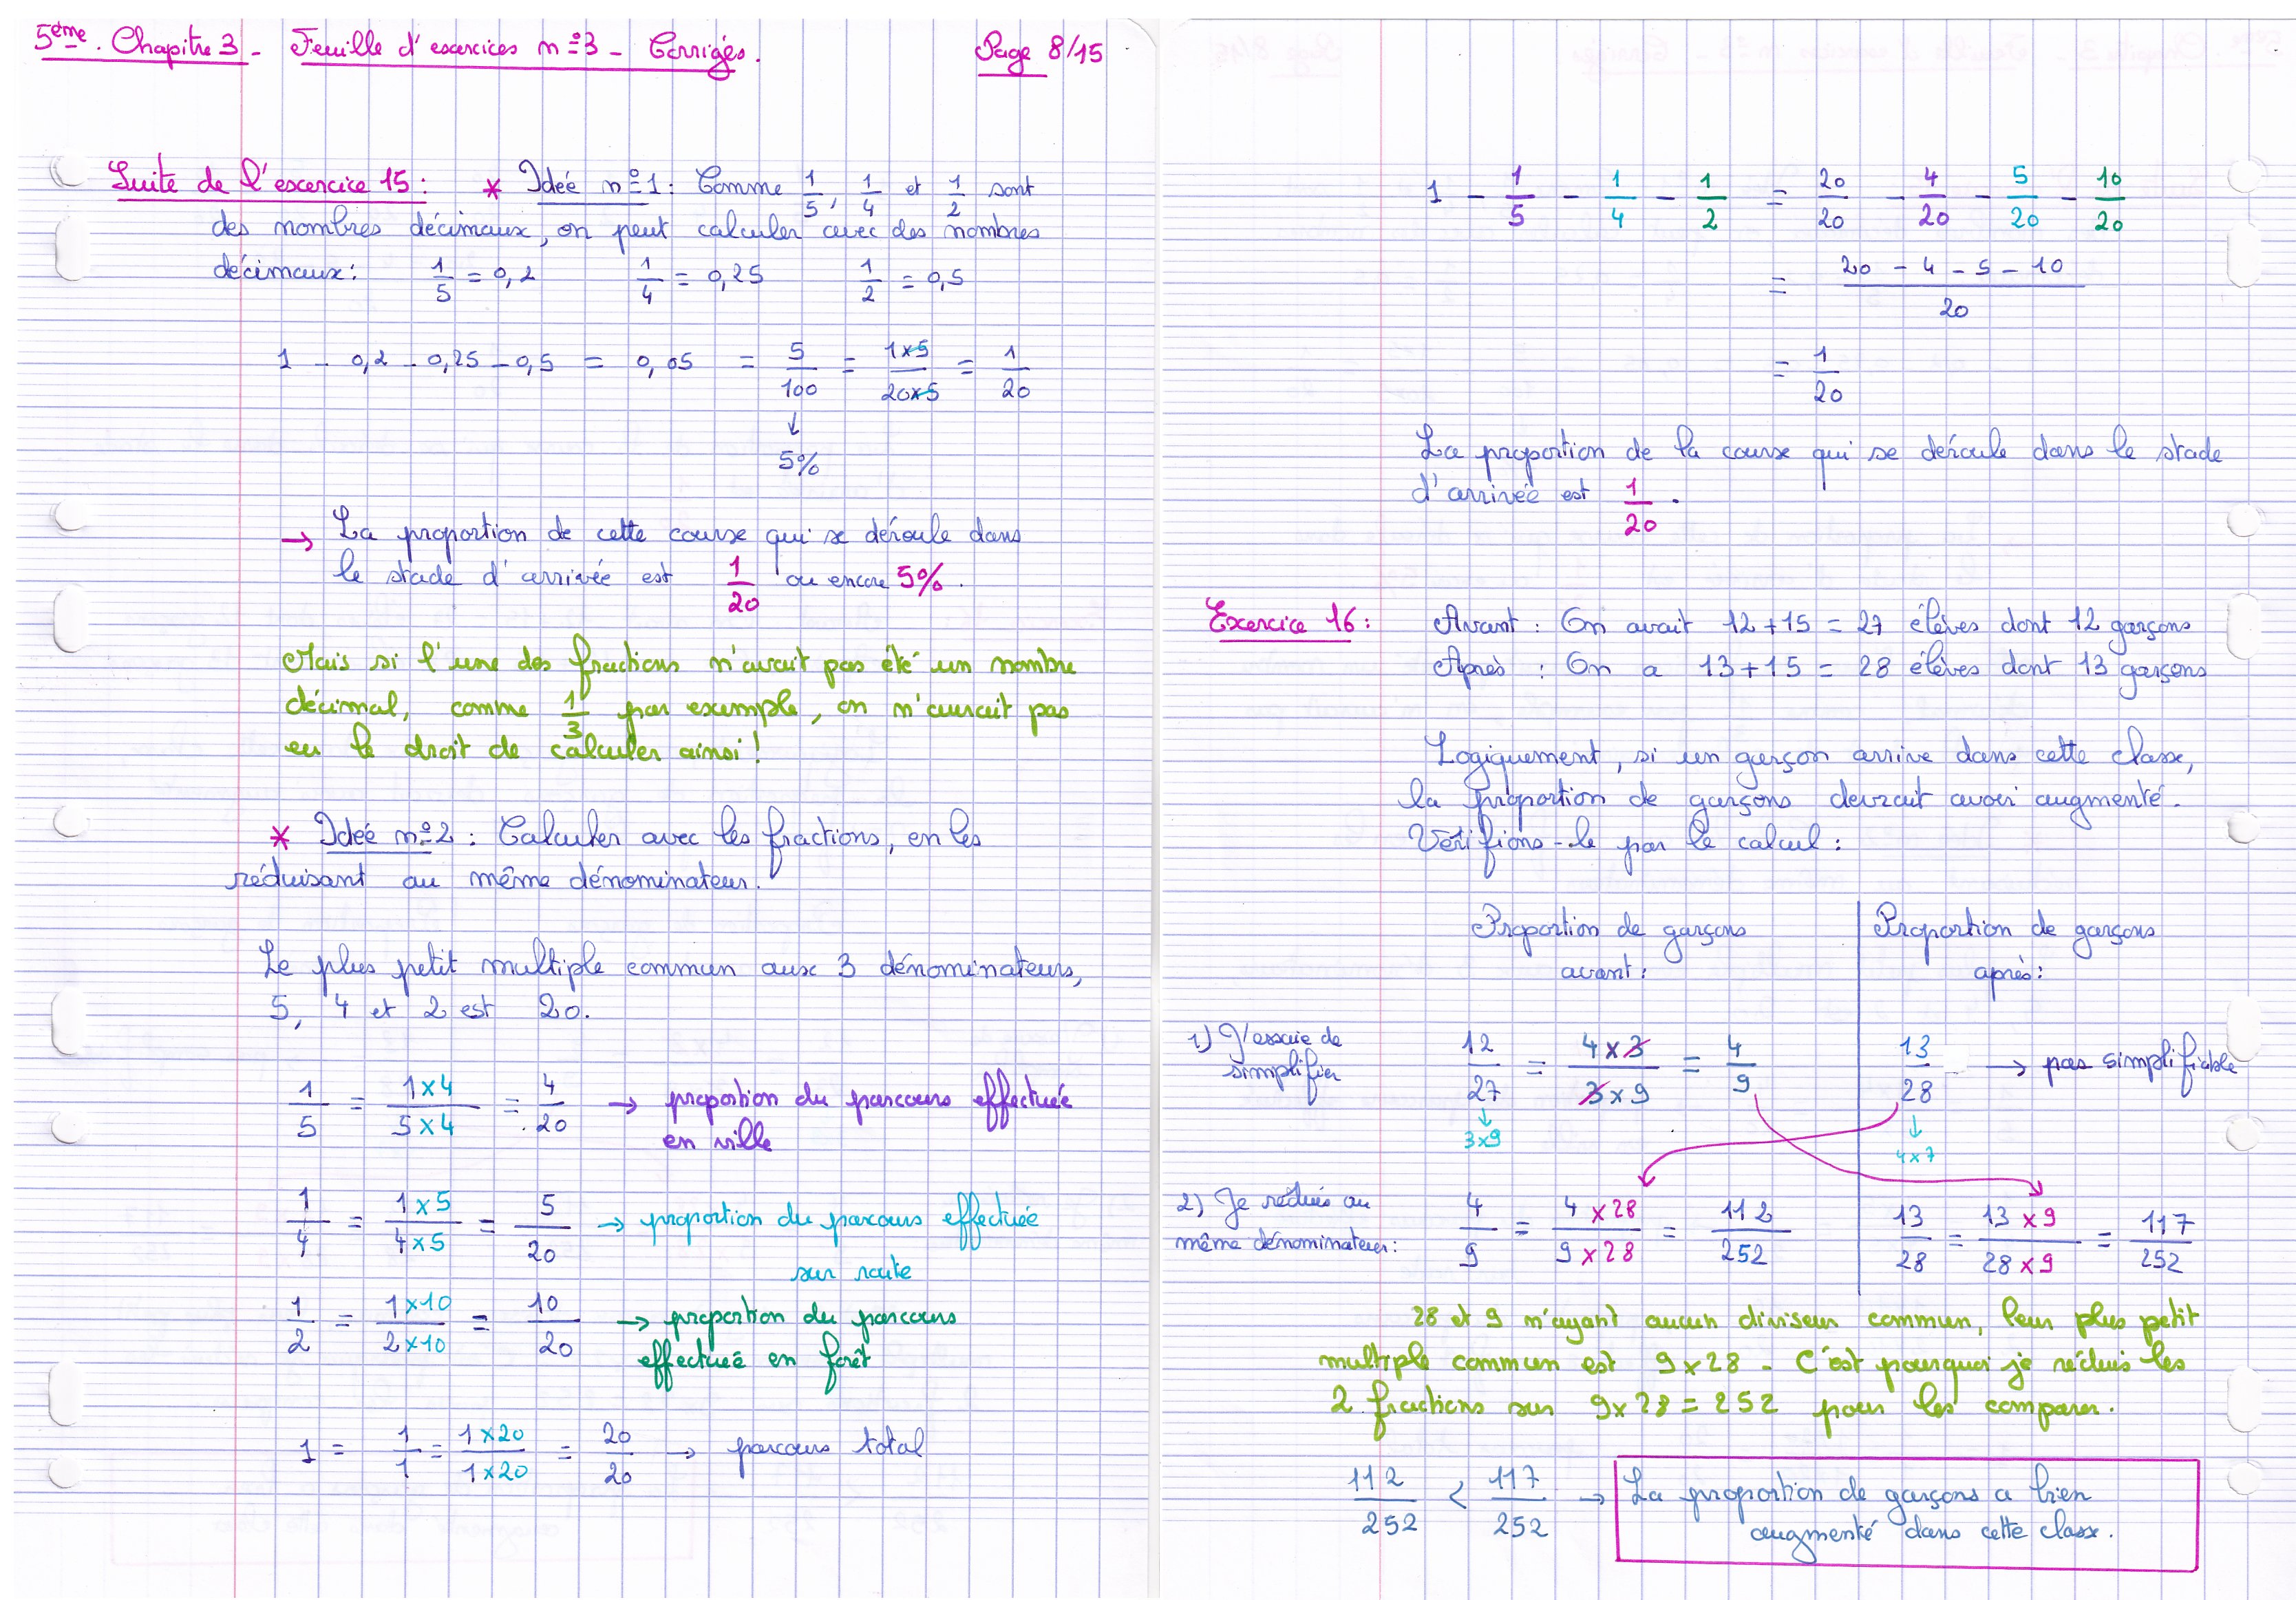 5ème. Chapitre 3 - Feuille d'exercices n°3 - Corrigés. Page 8/15
Suite de l'exercice 15 : * Idée n°1 : Comme 1/5, 1/4 et 1/2 sont
des nombres décimaux, on peut calculer avec des nombres
décimaux : 1/5 = 0,2 1/4 = 0,25 1/2 = 0,5
1 - 0,2 - 0,25 - 0,5 = 0,05 = 5/100 = 1×5/20×5 = 1/20
↓
5%
→ La proportion de cette course qui se déroule dans
le stade d'arrivée est 1/20 ou encore 5%.
Mais si l'une des fractions n'avait pas été un nombre
décimal, comme 1/3 par exemple, on n'aurait pas
eu le droit de calculer ainsi !
* Idée n°2 : Calculer avec les fractions, en les
réduisant au même dénominateur.
Le plus petit multiple commun aux 3 dénominateurs,
5, 4 et 2 est 20.
1/5 = 1×4/5×4 = 4/20 → proportion du parcours effectuée
en ville
1/4 = 1×5/4×5 = 5/20 → proportion du parcours effectuée
sur route
1/2 = 1×10/2×10 = 10/20 → proportion du parcours
effectuée en forêt
1 = 1/1 = 1×20/1×20 = 20/20 → parcours total
1 - 1/5 - 1/4 - 1/2 = 20/20 - 4/20 - 5/20 - 10/20
= 20 - 4 - 5 - 10/20
= 1/20
La proportion de la course qui se déroule dans le stade
d'arrivée est 1/20.
Exercice 16 : Avant : On avait 12+15 = 27 élèves dont 12 garçons
Après : On a 13+15 = 28 élèves dont 13 garçons
Logiquement, si un garçon arrive dans cette classe,
la proportion de garçons devrait avoir augmenté.
Vérifions-le par le calcul :
Proportion de garçons
avant :
Proportion de garçons
après :
1) J'essaie de
simplifier
12/27 = 4×3/3×9 = 4/9
↓
3×9
13/28 → pas simplifiable
↓
4×7
2) Je réduis au
même dénominateur :
4/9 = 4×28/9×28 = 112/252
13/28 = 13×9/28×9 = 117/252
28 et 9 n'ayant aucun diviseur commun, leur plus petit
multiple commun est 9×28 - C'est pourquoi je réduis les
2 fractions sur 9×28 = 252 pour les comparer.
112/252 < 117/252 → La proportion de garçons a bien
augmenté dans cette classe.